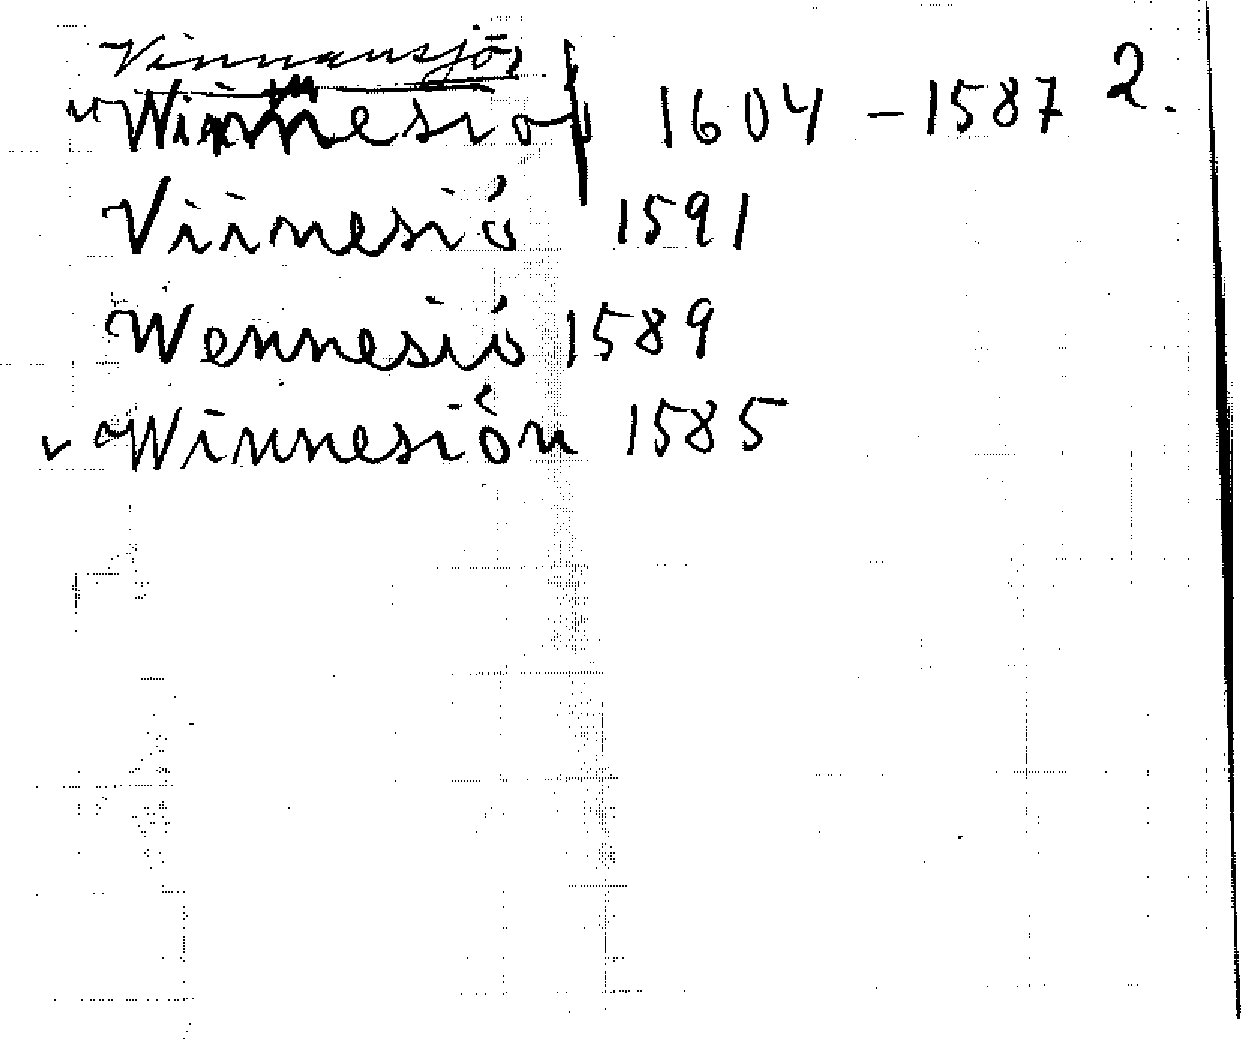 Vinnansjön 2.
Winnesiö 1604 – 1587
Viinesiö 1591
Wennesiö 1589
v Winnesiön 1585